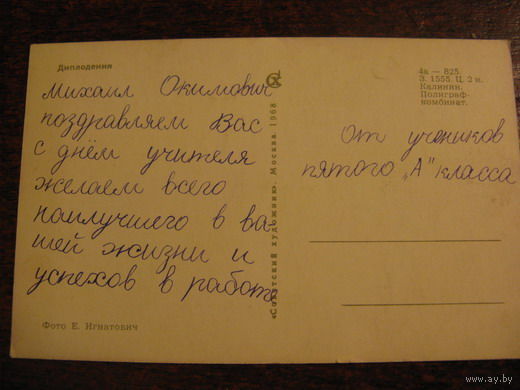 Диплодения
Михаил Окимович
поздравляем Вас
с днём учителя
желаем всего
наилучшего в ва-
шей жизни и
успехов в работе
Фото Е. Игнатович
«Советский художник». Москва. 1968
4а — 825.
З. 1555. Ц. 2 к.
Калинин.
Полиграф-
комбинат.
от учеников
пятого „А" класса
www.ay.by